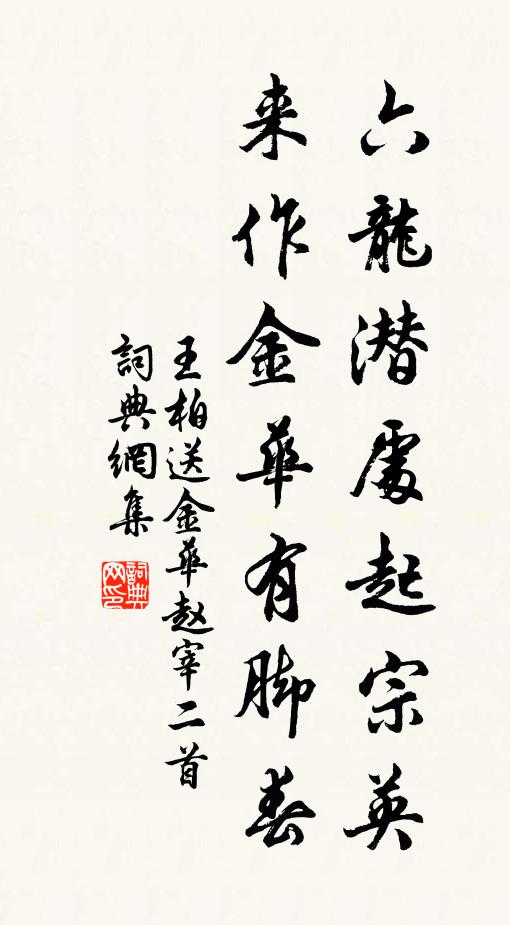 六龍潛處起宗英
来作金華有脚春
王柏送金華赵宰二首
詞典網集
詞典网印